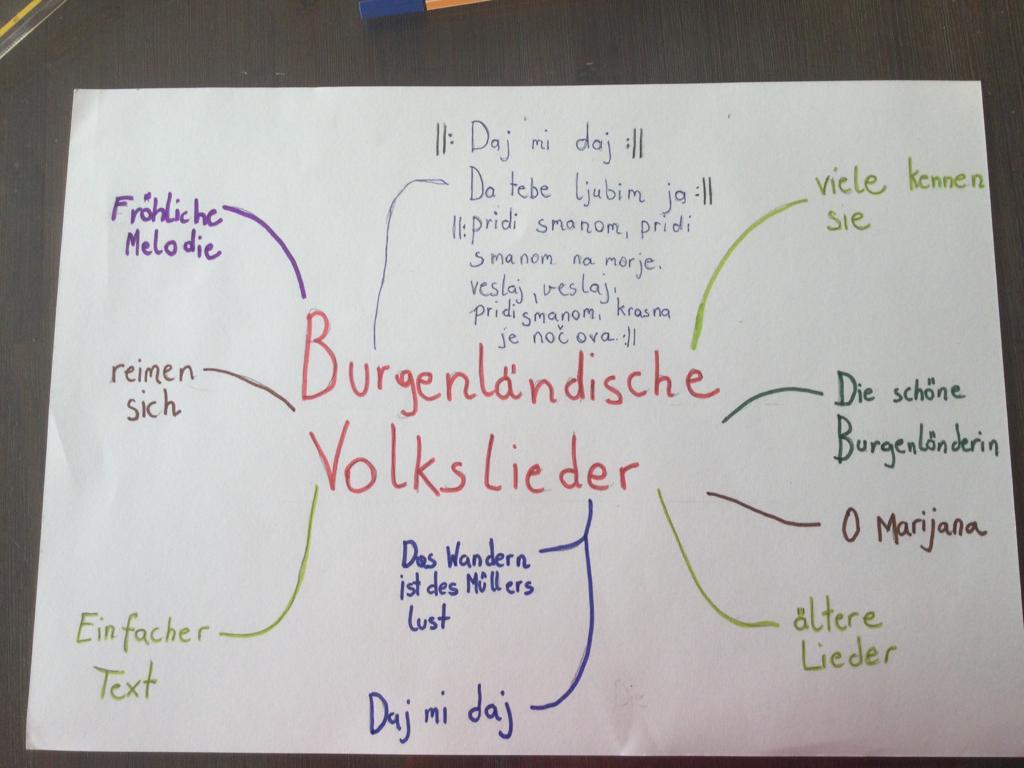 ||: Daj mi daj :||
Da tebe ljubim ja :||
||: pridi smanom, pridi
smanom na morje.
veslaj, veslaj,
pridi smanom, krasna
je noč ova. :||
Fröhliche
Melodie
viele kennen
sie
Burgenländische
Volkslieder
reimen
sich
Die schöne
Burgenländerin
O Marijana
Das Wandern
ist des Müllers
lust
Einfacher
Text
ältere
Lieder
Daj mi daj
Die